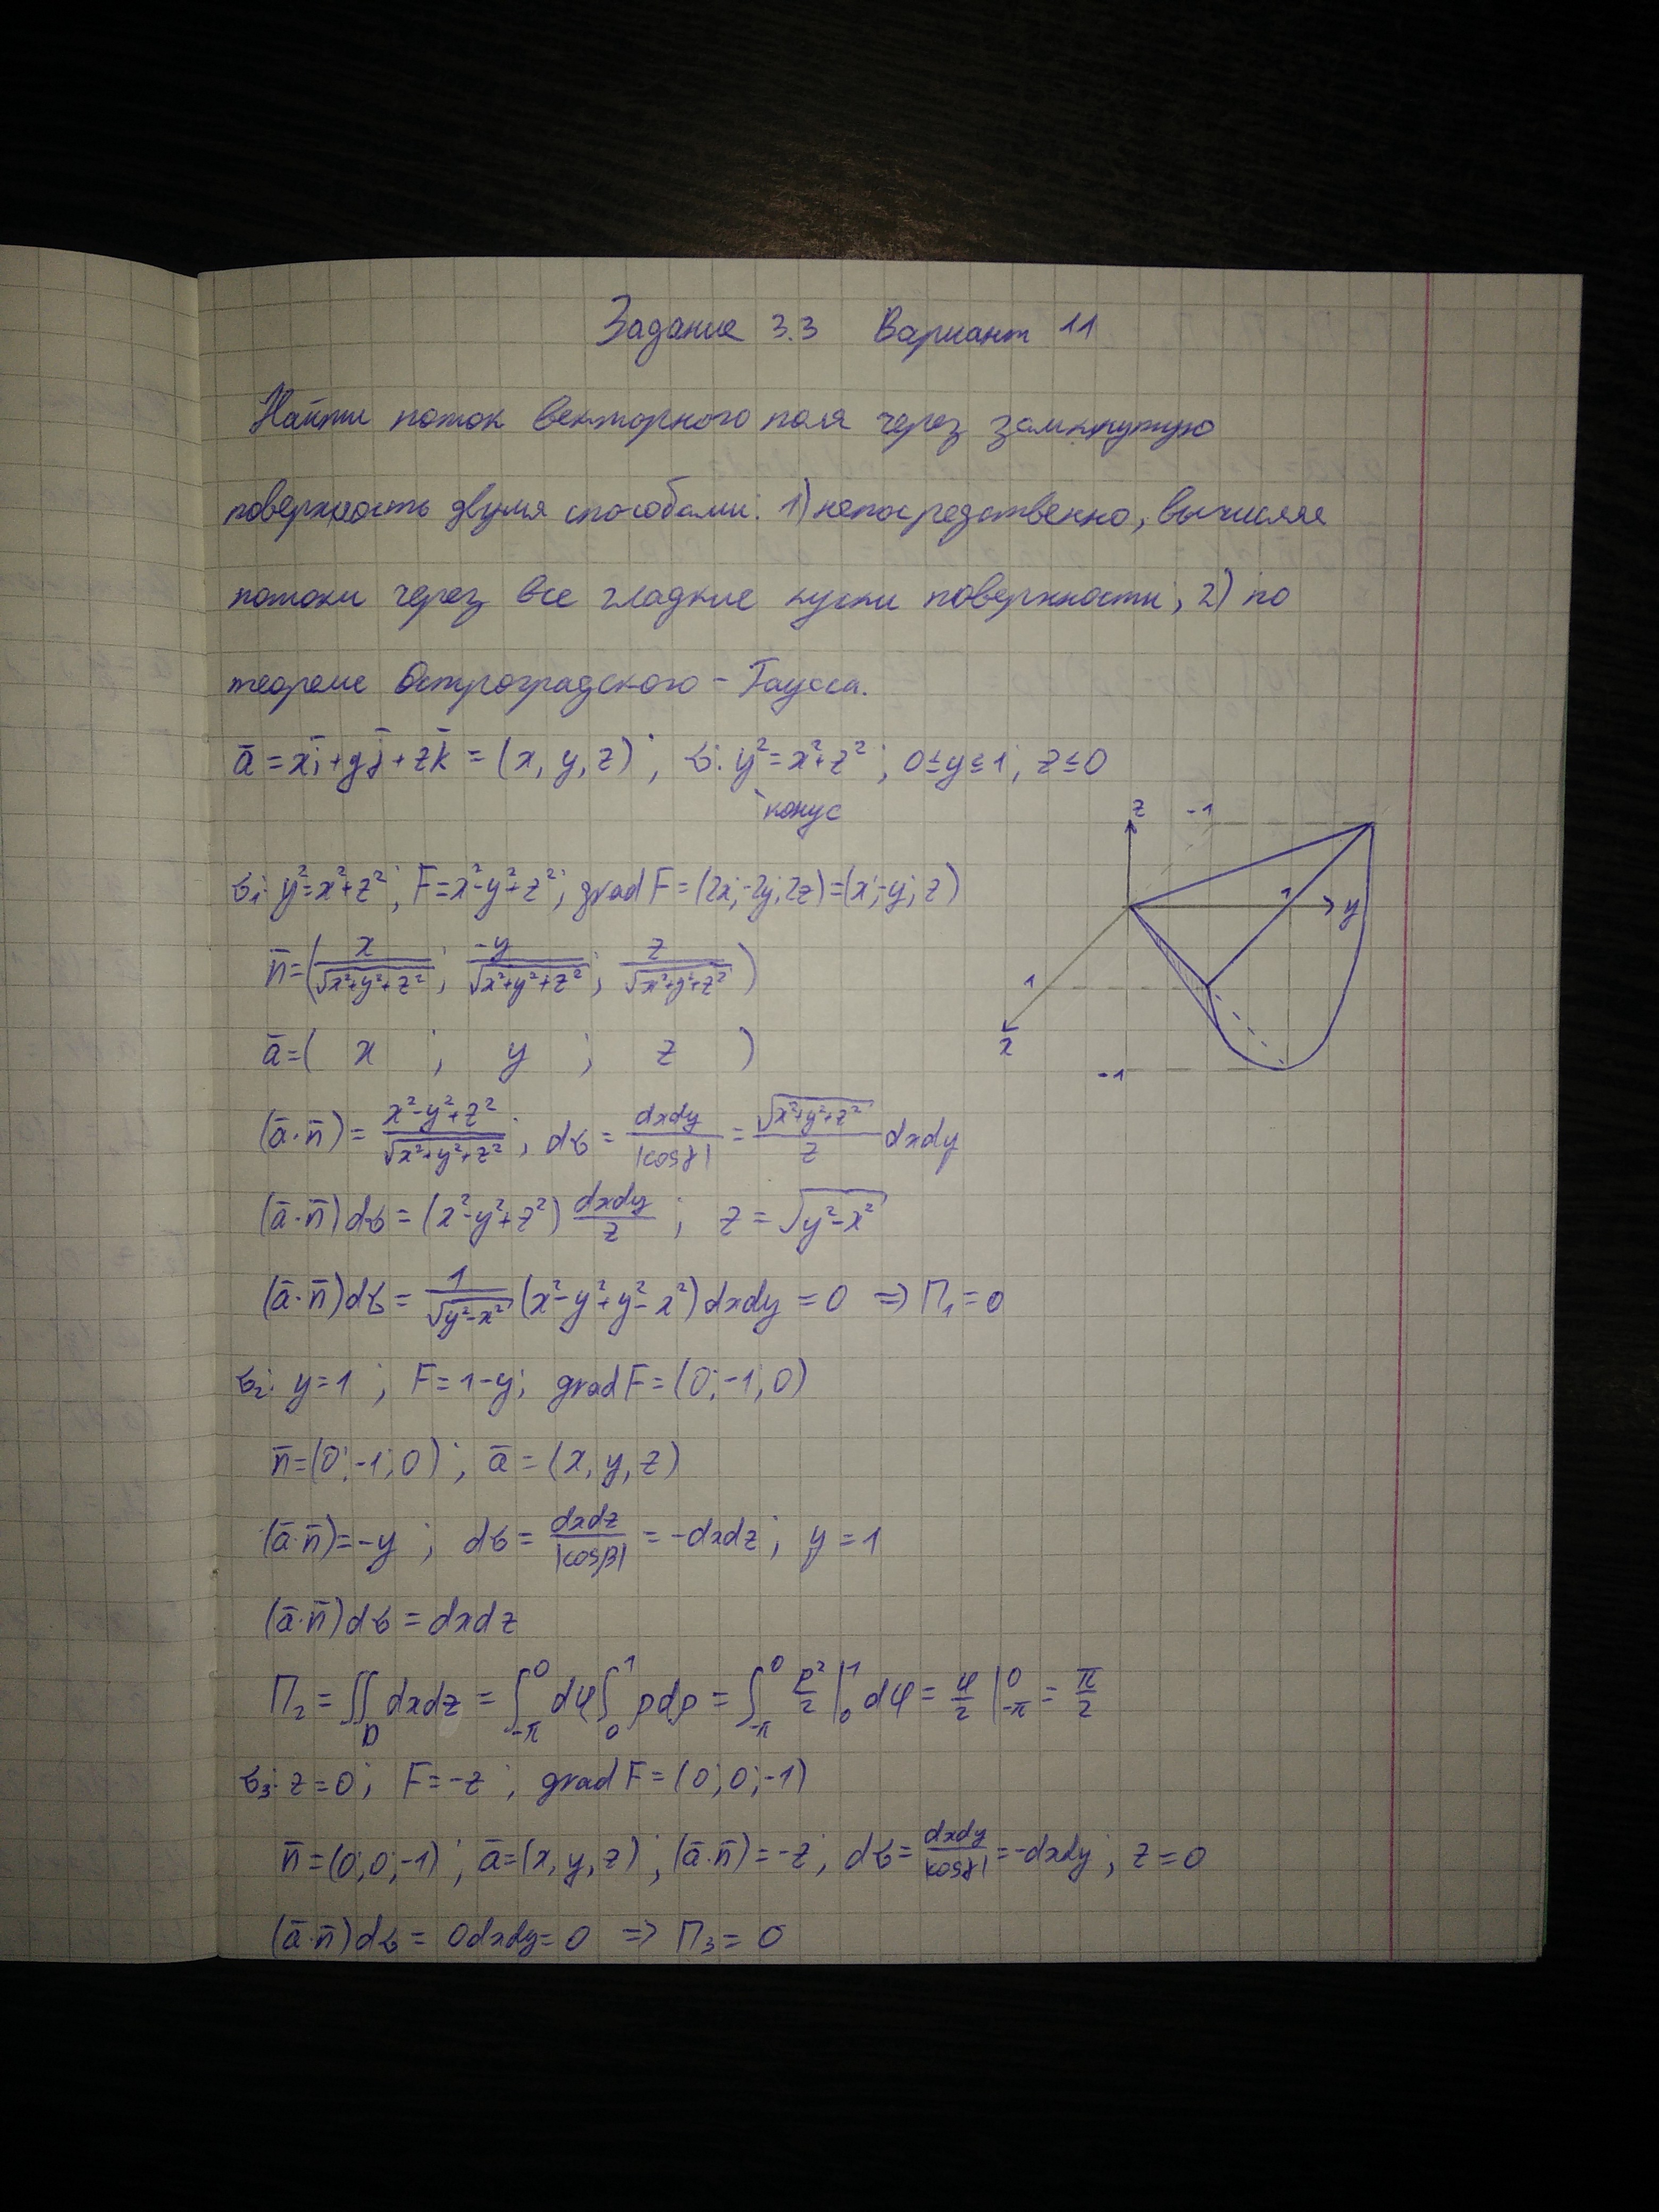 Задание 3.3 Вариант 11
Найти поток векторного поля через замкнутую
поверхность двумя способами: 1) непосредственно, вычисляя
потоки через все гладкие куски поверхности; 2) по
теореме Остроградского - Гаусса.
ā = xī + yj̄ + zk̄ = (x, y, z) ; σ: y² = x² + z² ; 0 ≤ y ≤ 1 ; z ≤ 0
конус
z -1
1 y
1
x
-1
σ₁: y² = x² + z² ; F = x² - y² + z² ; grad F = (2x; -2y; 2z) = (x; -y; z)
n̄ = (x/√(x²+y²+z²) ; -y/√(x²+y²+z²) ; z/√(x²+y²+z²))
ā = ( x ; y ; z )
(ā·n̄) = (x² - y² + z²)/√(x²+y²+z²) ; dσ = dxdy/|cosγ| = √(x²+y²+z²)/z dxdy
(ā·n̄)dσ = (x² - y² + z²) dxdy/z ; z = √(y² - x²)
(ā·n̄)dσ = 1/√(y² - x²) (x² - y² + y² - x²) dxdy = 0 => П₁ = 0
σ₂: y = 1 ; F = 1 - y ; grad F = (0; -1; 0)
n̄ = (0; -1; 0) ; ā = (x, y, z)
(ā·n̄) = -y ; dσ = dxdz/|cosβ| = -dxdz ; y = 1
(ā·n̄)dσ = dxdz
П₂ = ∬_D dxdz = ∫_{-π}^0 dφ ∫_0^1 ρdρ = ∫_{-π}^0 ρ²/2 |_0^1 dφ = φ/2 |_{-π}^0 = π/2
σ₃: z = 0 ; F = -z ; grad F = (0; 0; -1)
n̄ = (0; 0; -1) ; ā = (x, y, z) ; (ā·n̄) = -z ; dσ = dxdy/|cosγ| = -dxdy ; z = 0
(ā·n̄)dσ = 0dxdy = 0 => П₃ = 0